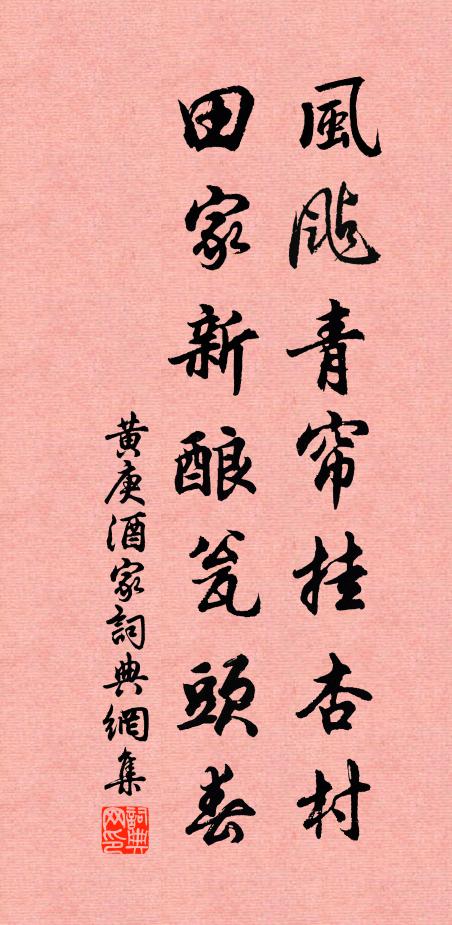 風颭青帘挂杏村
田家新酿瓮頭春
黄庚酒家詞典網集
詞典
网印